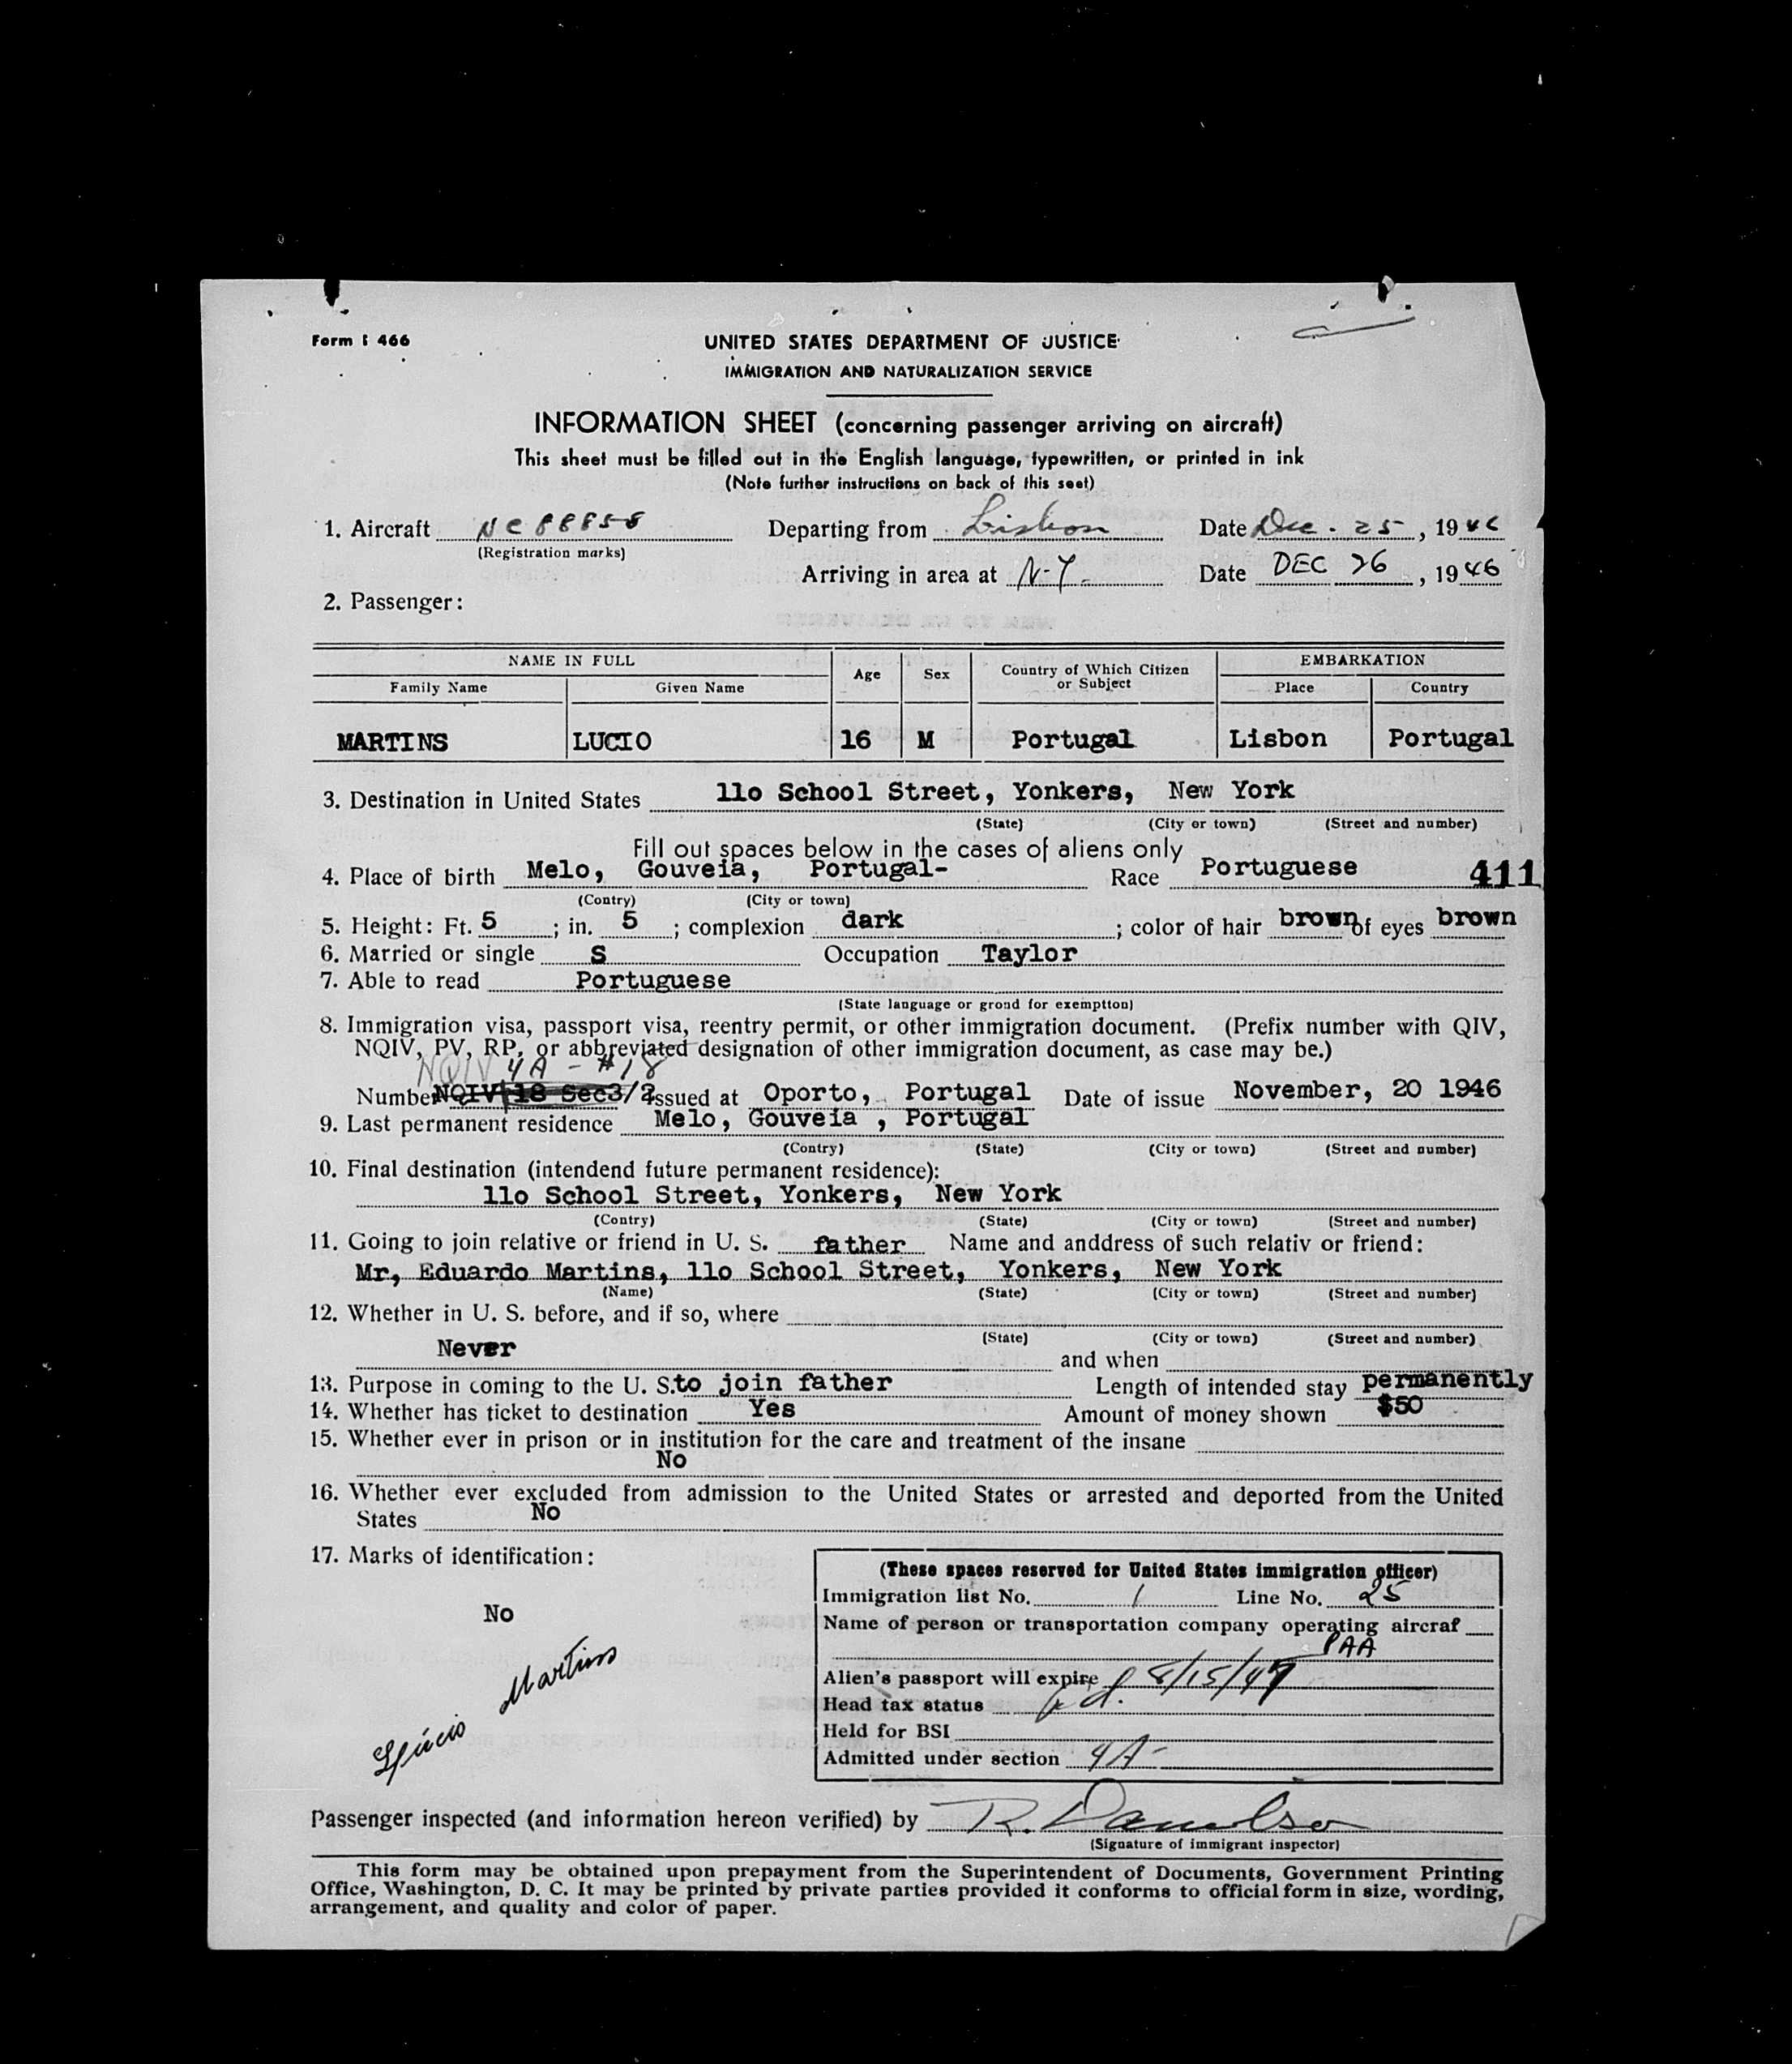 Form I 466
UNITED STATES DEPARTMENT OF JUSTICE
IMMIGRATION AND NATURALIZATION SERVICE
INFORMATION SHEET (concerning passenger arriving on aircraft)
This sheet must be filled out in the English language, typewritten, or printed in ink
(Note further instructions on back of this seet)
1. Aircraft NC 88858 Departing from Lisbon Date Dec. 25, 1946
(Registration marks)
Arriving in area at N.Y. Date DEC 26, 1946
2. Passenger:
NAME IN FULL Age Sex Country of Which Citizen or Subject EMBARKATION
Family Name Given Name Place Country
MARTINS LUCIO 16 M Portugal Lisbon Portugal
3. Destination in United States 11o School Street, Yonkers, New York
(State) (City or town) (Street and number)
Fill out spaces below in the cases of aliens only
4. Place of birth Melo, Gouveia, Portugal- Race Portuguese 411
(Contry) (City or town)
5. Height: Ft. 5 ; in. 5 ; complexion dark ; color of hair brown of eyes brown
6. Married or single S Occupation Taylor
7. Able to read Portuguese
(State language or grond for exemptton)
8. Immigration visa, passport visa, reentry permit, or other immigration document. (Prefix number with QIV,
NQIV, PV, RP, or abbreviated designation of other immigration document, as case may be.)
NQIV 4A - #18
Number NQIV 18 Sec3/2 issued at Oporto, Portugal Date of issue November, 20 1946
9. Last permanent residence Melo, Gouveia , Portugal
(Contry) (State) (City or town) (Street and number)
10. Final destination (intendend future permanent residence):
11o School Street, Yonkers, New York
(Contry) (State) (City or town) (Street and number)
11. Going to join relative or friend in U. S. father Name and anddress of such relativ or friend:
Mr, Eduardo Martins, 11o School Street, Yonkers, New York
(Name) (State) (City or town) (Street and number)
12. Whether in U. S. before, and if so, where
(State) (City or town) (Street and number)
Never and when
13. Purpose in coming to the U. S. to join father Length of intended stay permanently
14. Whether has ticket to destination Yes Amount of money shown $50
15. Whether ever in prison or in institution for the care and treatment of the insane
No
16. Whether ever excluded from admission to the United States or arrested and deported from the United
States No
17. Marks of identification:
No
Lúcio Martins
(These spaces reserved for United States immigration officer)
Immigration list No. 1 Line No. 25
Name of person or transportation company operating aircraf
PAA
Alien's passport will expire 8/15/47
Head tax status pd.
Held for BSI
Admitted under section 4A-
Passenger inspected (and information hereon verified) by R. Danielso
(Signature of immigrant inspector)
This form may be obtained upon prepayment from the Superintendent of Documents, Government Printing
Office, Washington, D. C. It may be printed by private parties provided it conforms to official form in size, wording,
arrangement, and quality and color of paper.